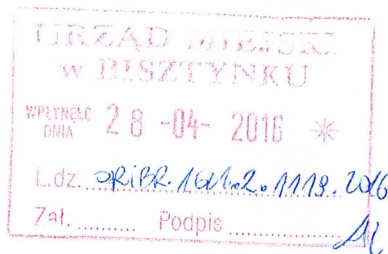 URZĄD MIEJSKI
w BISZTYNKU
WPŁYNĘŁO
DNIA 28 -04- 2016 *
L.dz. ORiBR. 2.1119.2016
Zał. .......... Podpis ..............